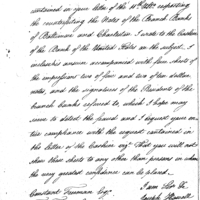 contained in your letter of the 15th respecting
the counterfeiting the Notes of the Branch Banks
of Baltimore and Charleston I wrote to the Cashier
of the Bank of the United States on the subject. I
inclose his answer accompanied with four sheets of
the impressions two of five and two of ten dollar
notes, and the signatures of the Presidents of the
branch banks referred to, which I hope may
seem to detect the fraud and I request your en-
tire compliance with the request contained in
the letter of the Cashier viz. That you will not
shew these sheets to any other than persons in whom
the very greatest confidence can be placed.
I am Sir &c
Constant Freeman Esq.
Joseph Howell